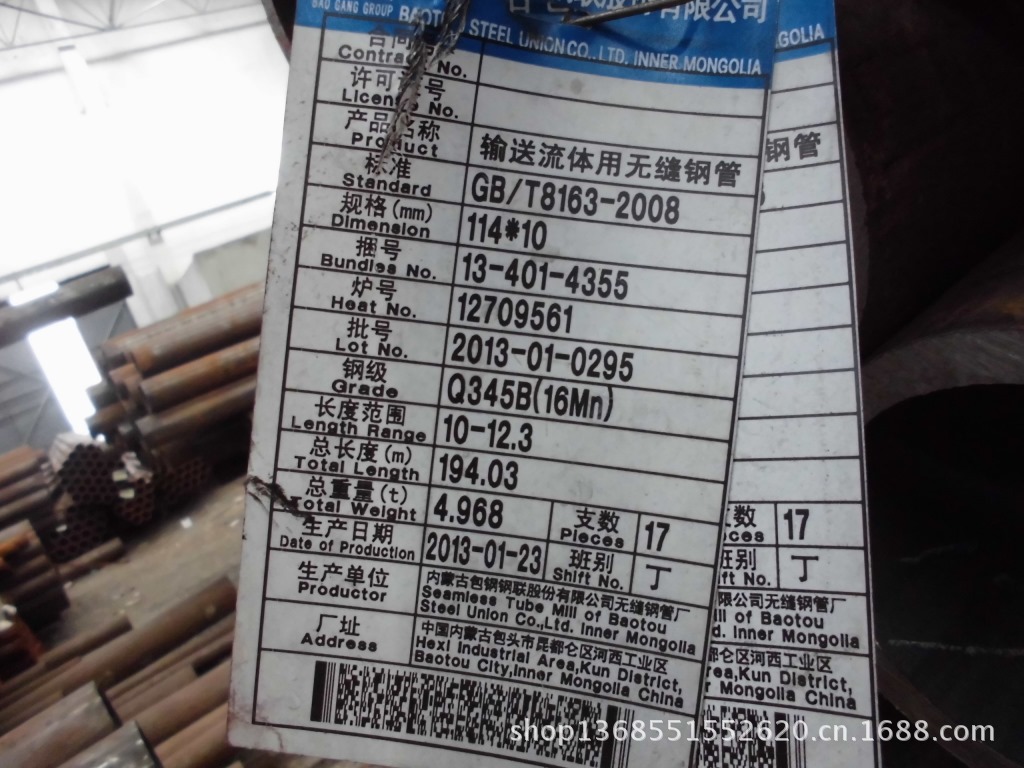 有限公司
BAO GANG GROUP BAOTOU STEEL UNION CO., LTD. INNER MONGOLIA
合同
Contract No.
许可证号
License No.
产品名称 输送流体用无缝钢管
Product
标准 GB/T8163-2008
Standard
规格(mm) 114*10
Dimension
捆号 13-401-4355
Bundles No.
炉号 12709561
Heat No.
批号 2013-01-0295
Lot No.
钢级 Q345B(16Mn)
Grade
长度范围 10-12.3
Length Range
总长度(m) 194.03
Total Length
总重量(t) 4.968 支数 17
Total Weight Pieces
生产日期 2013-01-23 班别 丁
Date of Production Shift No.
生产单位 内蒙古包钢钢联股份有限公司无缝钢管厂
Productor Seamless Tube Mill of Baotou
Steel Union Co.,Ltd. Inner Mongolia
厂址 中国内蒙古包头市昆都仑区河西工业区
Address Hexi Industrial Area,Kun District,
Baotou City,Inner Mongolia China
GOLIA
钢管
支数 17
ces
班别 丁
ift No.
限公司无缝钢管厂
ill of Baotou
d. Inner Mongolia
都仑区河西工业区
rea,Kun District,
r Mongolia China
shop1368551552620.cn.1688.com